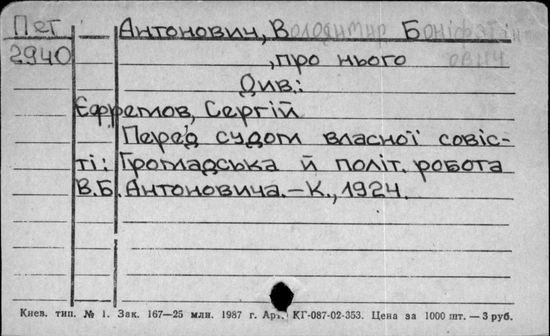 Пет
2940
Антонович, Володимир Боніфатій
ович
, про нього
Див.:
Єфремов, Сергій
Перед судом власної совіс-
ті: Громадська й політ. робота
В.Б. Антоновича. – К., 1924.
Киев. тип. № 1. Зак. 167—25 млн. 1987 г. Арт. КГ-087-02-353. Цена за 1000 шт. — 3 руб.